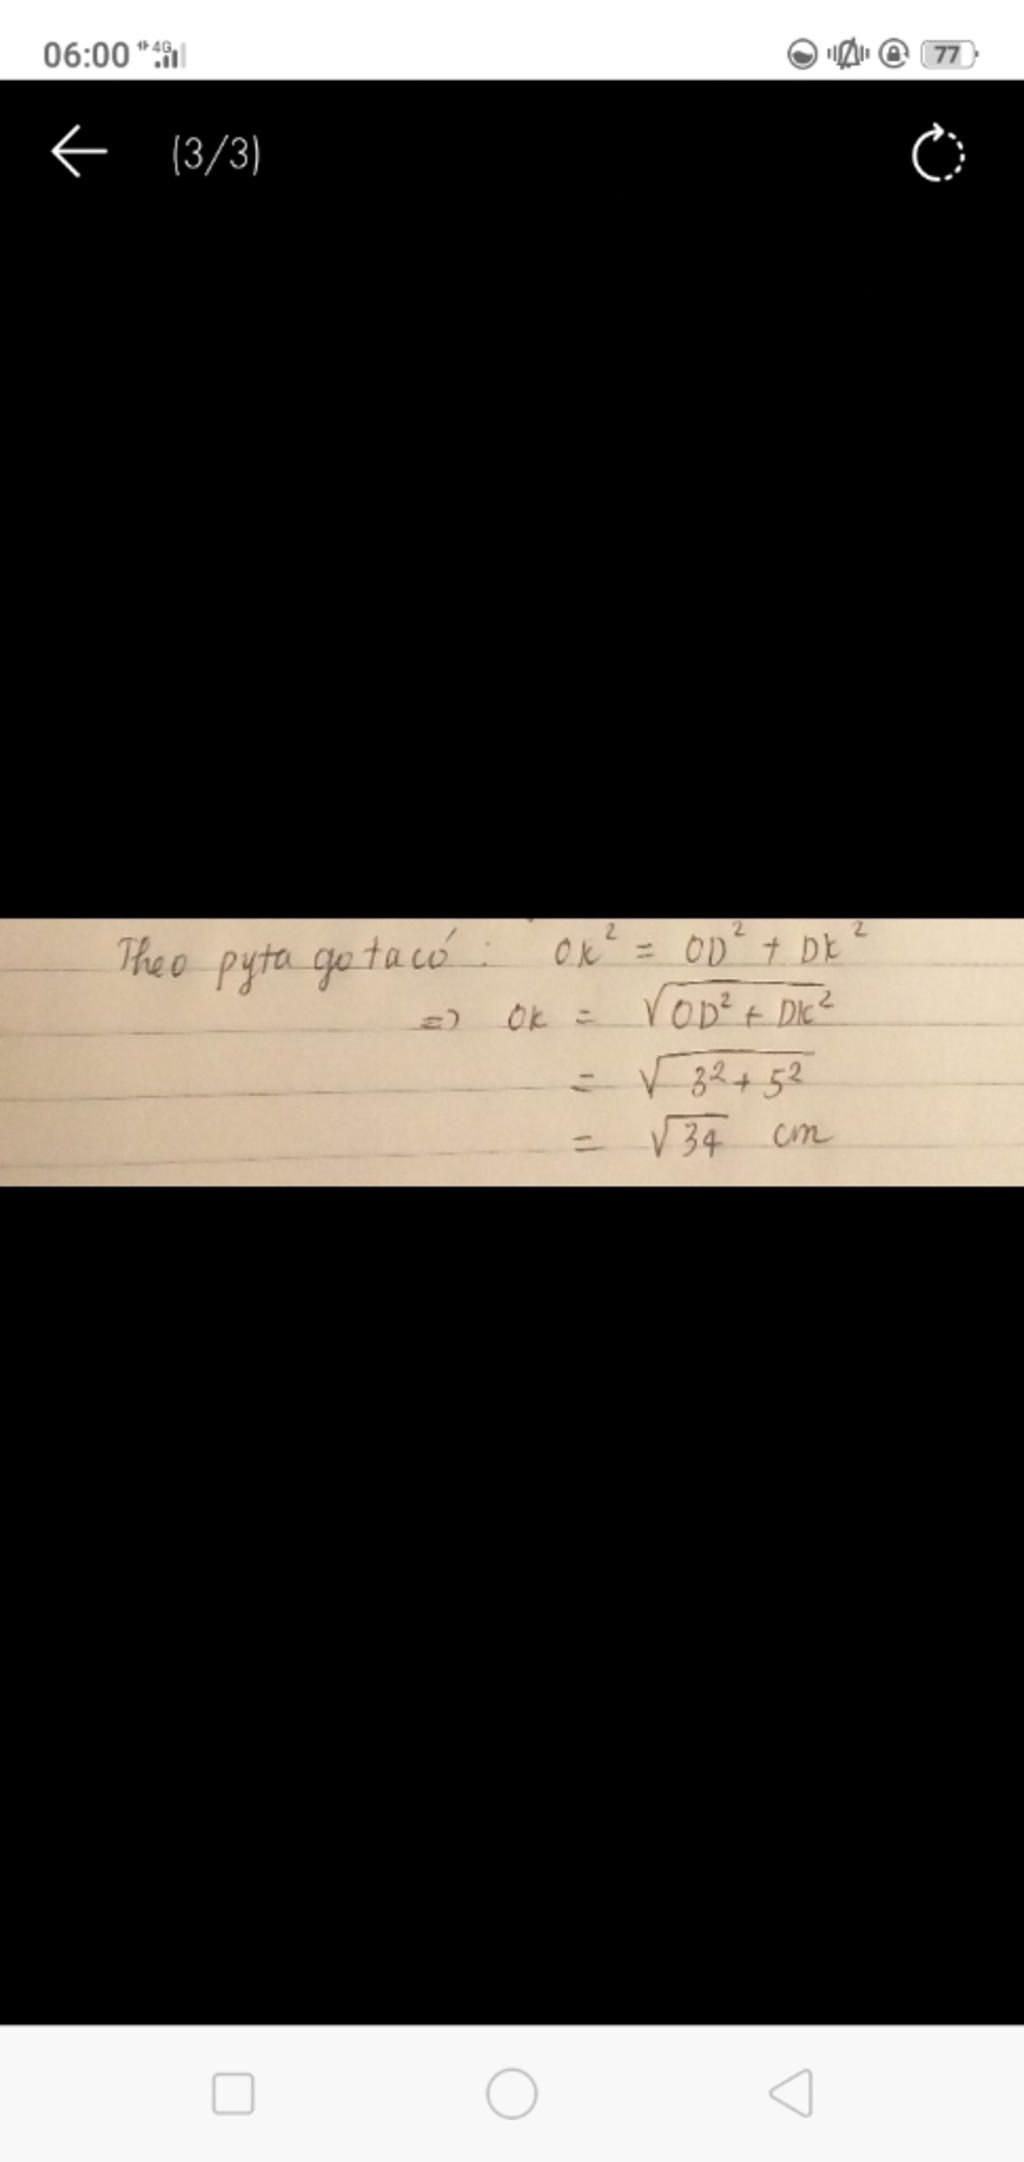 06:00 4G 77
(3/3)
Theo pytago ta có : OK² = OD² + DK²
=> OK = √OD² + DK²
= √3² + 5²
= √34 cm